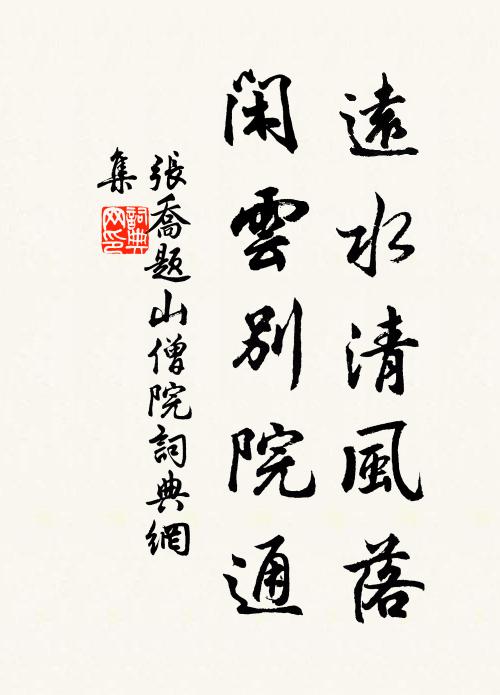 遠水清風落
閑雲別院通
張喬題山僧院詞典網
集
詞典
网印